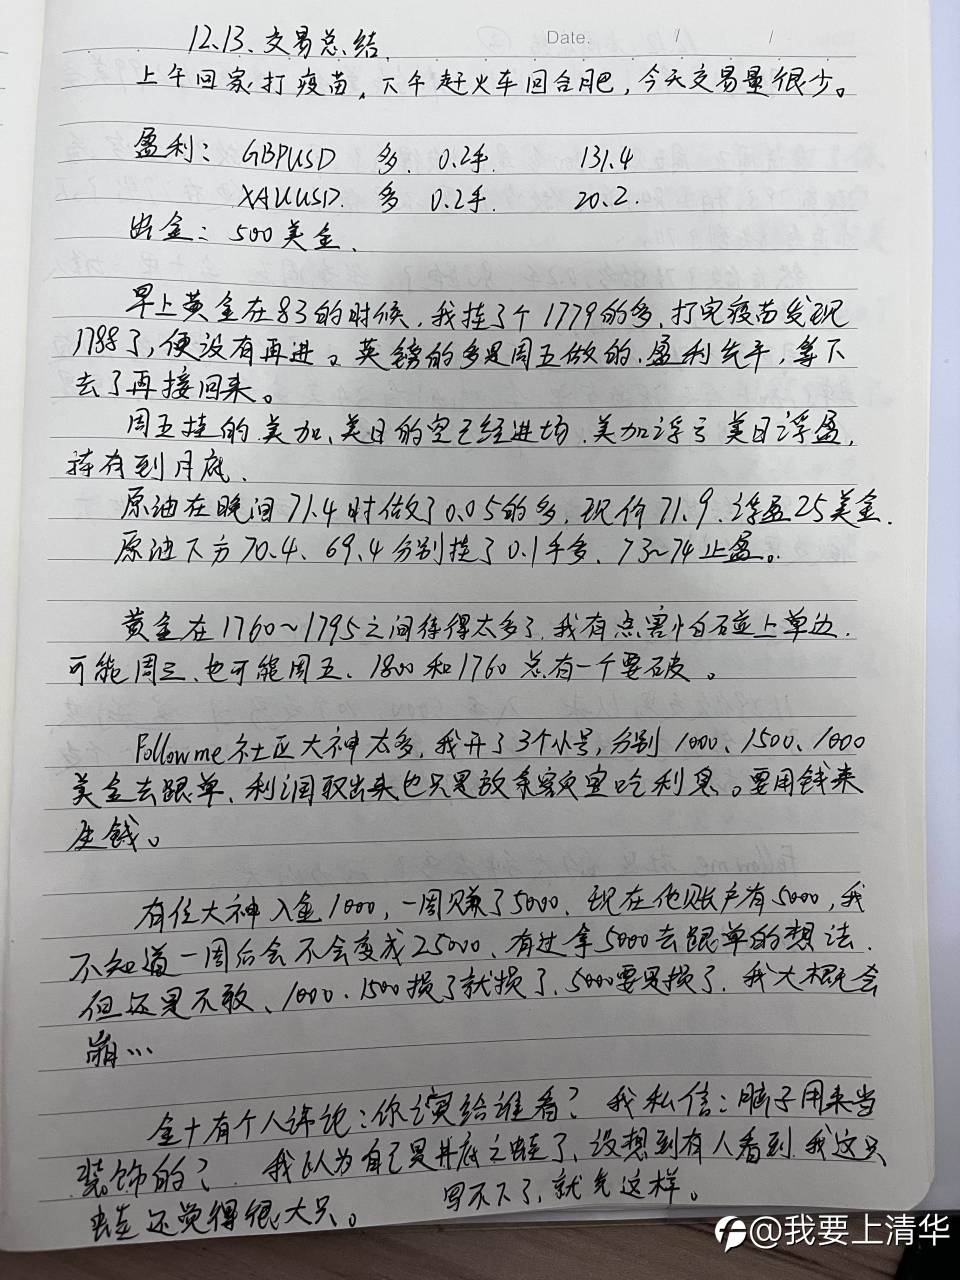 12.13.交易总结.
Date. / /
上午回家打疫苗,下午赶火车回合肥,今天交易量很少。
盈利: GBPUSD 多 0.2手. 131.4
XAUUSD. 多 0.2手. 20.2.
出金: 500美金.
早上黄金在83的时候,我挂了个1779的多,打完疫苗发现
1788了,便没有再进。英镑的多是周五做的.盈利先平,拿下
去了再接回来。
周五挂的美加、美日的空已经进场.美加浮亏 美日浮盈,
持有到月底.
原油在晚间71.4时做了0.05的多.现价71.9.浮盈25美金.
原油下方70.4、69.4分别挂了0.1手多、73~74止盈。
黄金在1760~1795之间待得太多了.我有点害怕碰上单边.
可能周三、也可能周五、1800和1760总有一个要破。
Followme社区大神太多,我开了3个小号,分别1000、1500、1000
美金去跟单、利润取出来也只是放余额宝吃利息。要用钱来
生钱。
有位大神入金1000,一周赚了5000、现在他账户有5000,我
不知道一周后会不会变成25000、有过拿5000去跟单的想法.
但还是不敢、1000、1500损了就损了、5000要是损了、我大概会
崩…
金十有个人评论:你演给谁看? 我私信:脑子用来当
装饰的? 我认为自己是井底之蛙了、没想到有人看到我这只
蛙还觉得很大只。 写不下了、就先这样。
@我要上清华